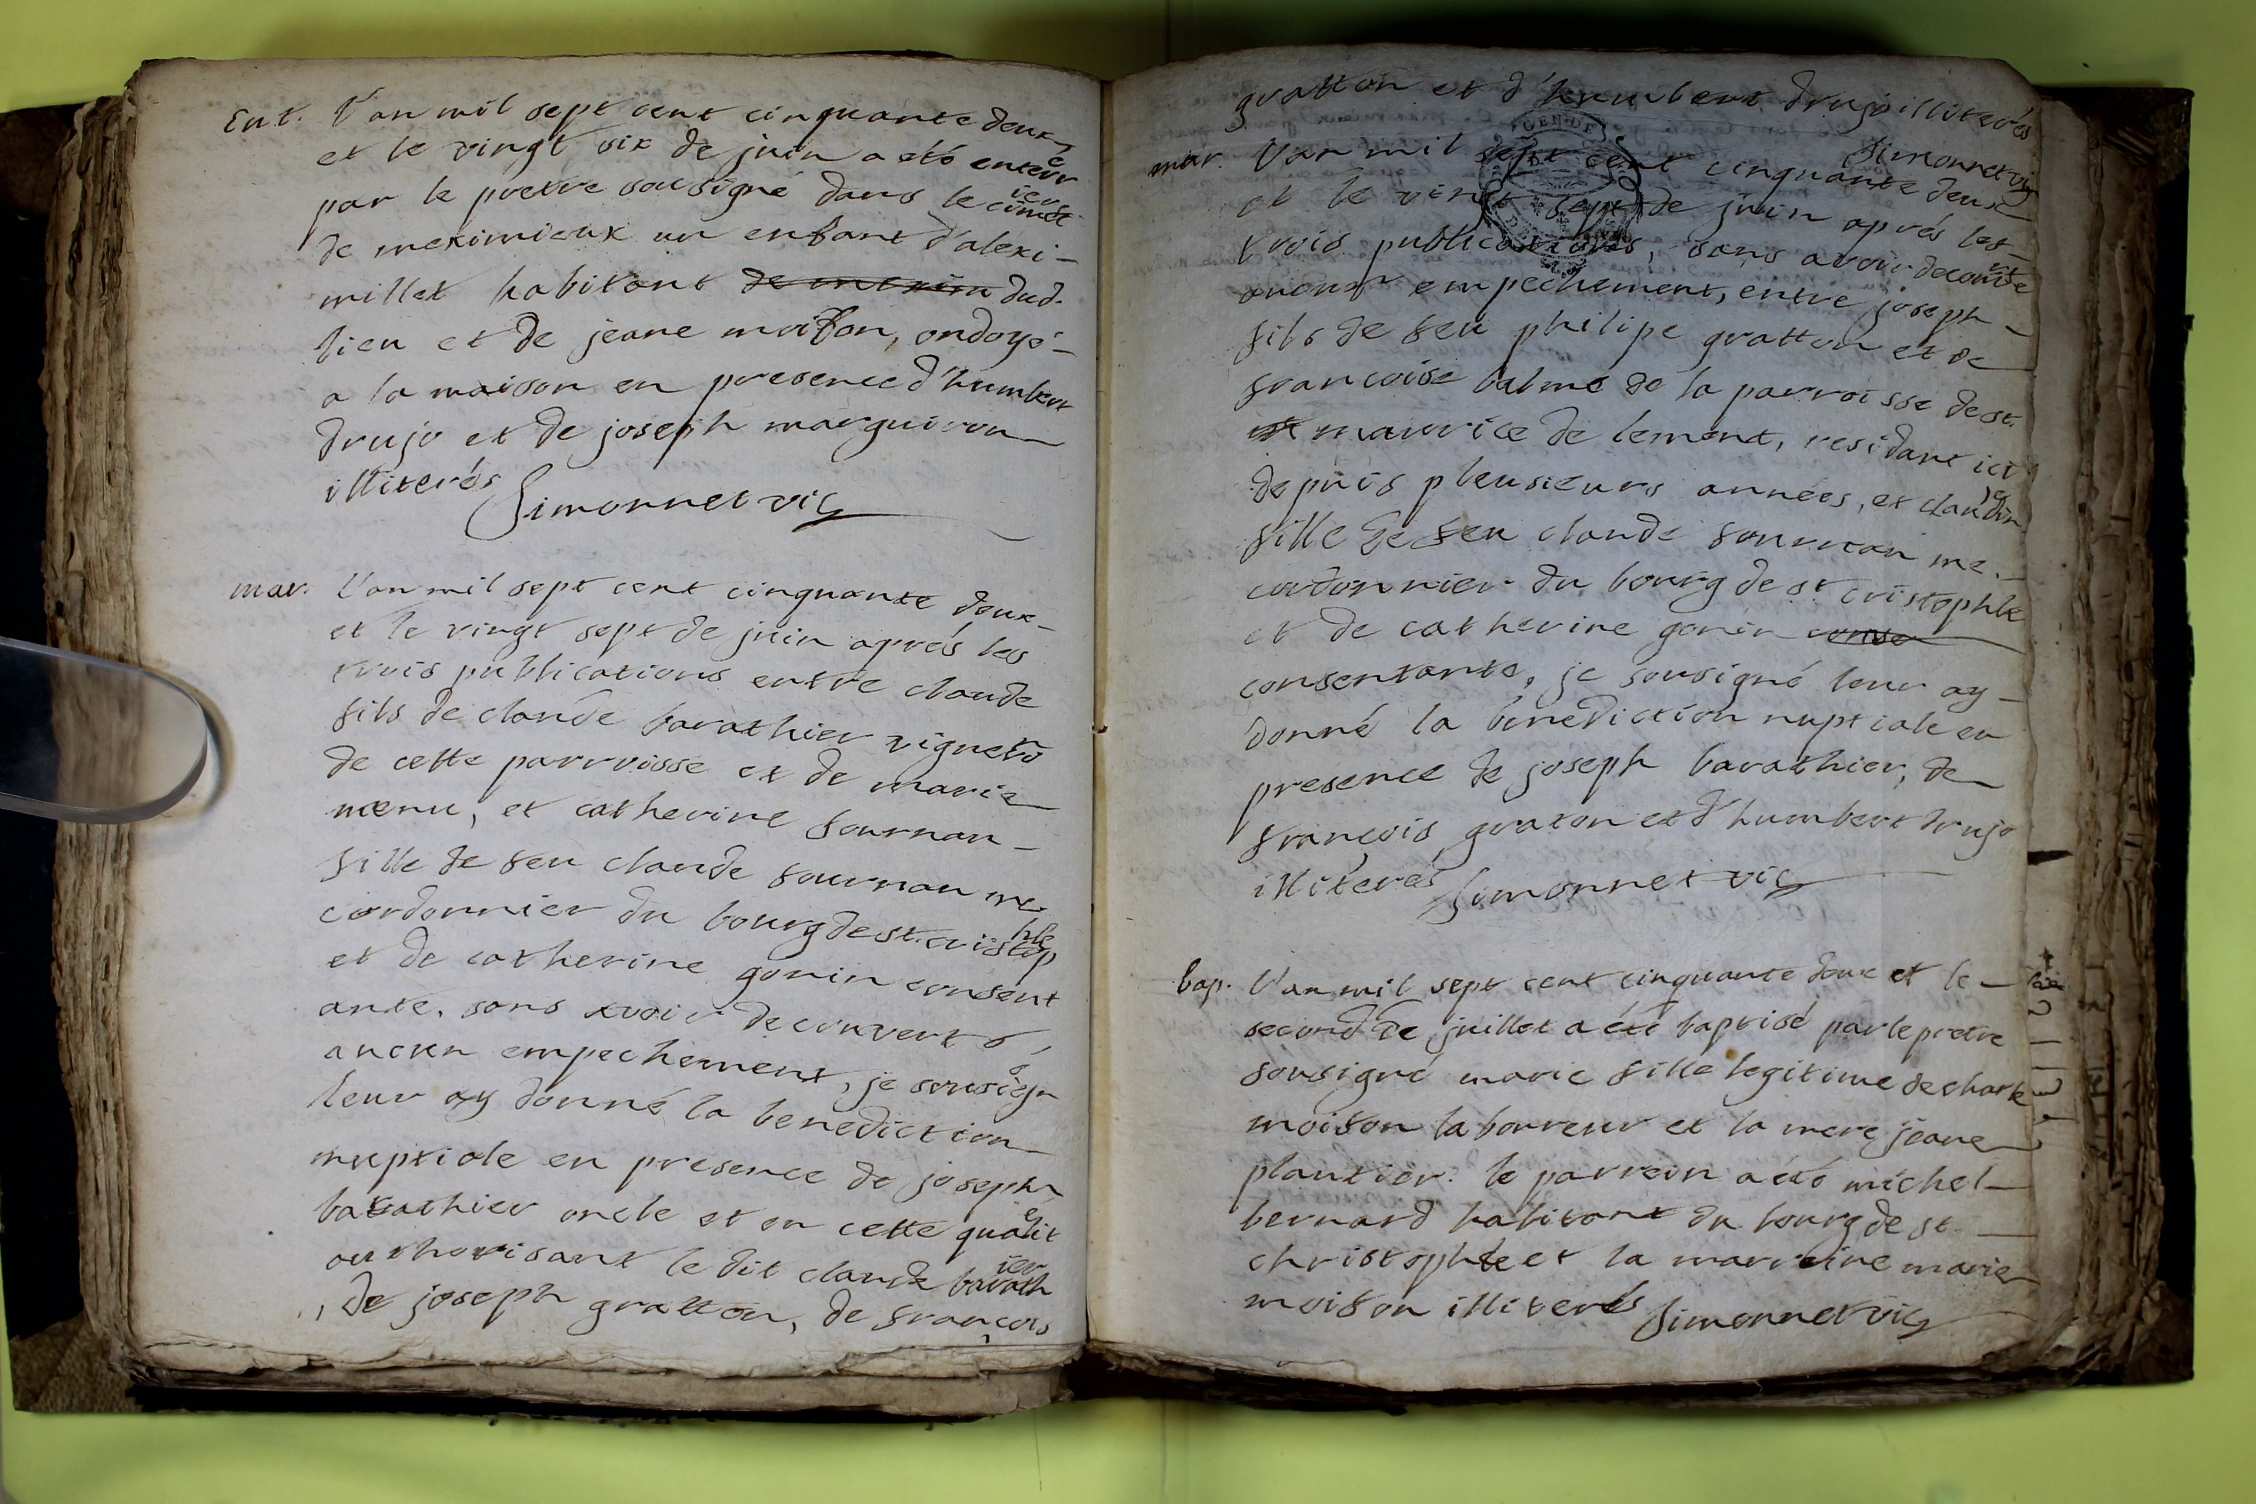 Ent. L'an mil sept cent cinquante deux
et le vingt six de juin a eté enterré
par le pretre sousigné dans le cimetier
de meximieux un enfant d'alexi-
millet habitant de meximi dud.
lieu et de jeane moifon, ondoyé-
a la maison en presence d'humbert
drujo et de joseph marguiron
illiterés Simonnet vic
mar. L'an mil sept cent cinquante deux-
et le vingt sept de juin aprés les
trois publications entre claude
fils de claude barathier vignero
de cette parroisse et de marie
menu, et catherine fournan-
fille de feu claude fournan me.
cordonnier du bourg de st. cristophle
et de catherine gonin consent
ante, sans avoir decouvert
aucun empechement, je sousigné
leur ay donné la benediction
nuptiale en presence de joseph
barathier oncle et en cette qualité
authorisant le dit claude barathier
, de joseph gratton, de françois
gratton et d'humbert drujo illiterés
Simonnet vic
mar. L'an mil sept cent cinquante deux
et le vingt sept de juin aprés les-
trois publications, sans avoir decouvert
aucun empechement, entre joseph-
fils de feu philipe gratton et de
francoise balme de la parroisse de st.
maurice de lement, residant ici
depuis pleusieurs années, et claudine
fille de feu claude fournan me.-
cordonnier du bourg de st cristophle
et de catherine gonin conse
consentante, je sousigné leur ay-
donné la benediction nuptiale en
presence de joseph barathier, de
françois graton et d'humbert drujo
illiterés Simonnet vic
bap. L'an mil sept cent cinquante deux et le-
second de juillet a été baptisé par le pretre
sousigné marie fille legitime de charle
moifon laboureur et la mere jeane
plantier. le parrein a été michel-
bernard habitant du bourg de st.-
christophle et la marreine marie
moifon illiterés Simonnet vic